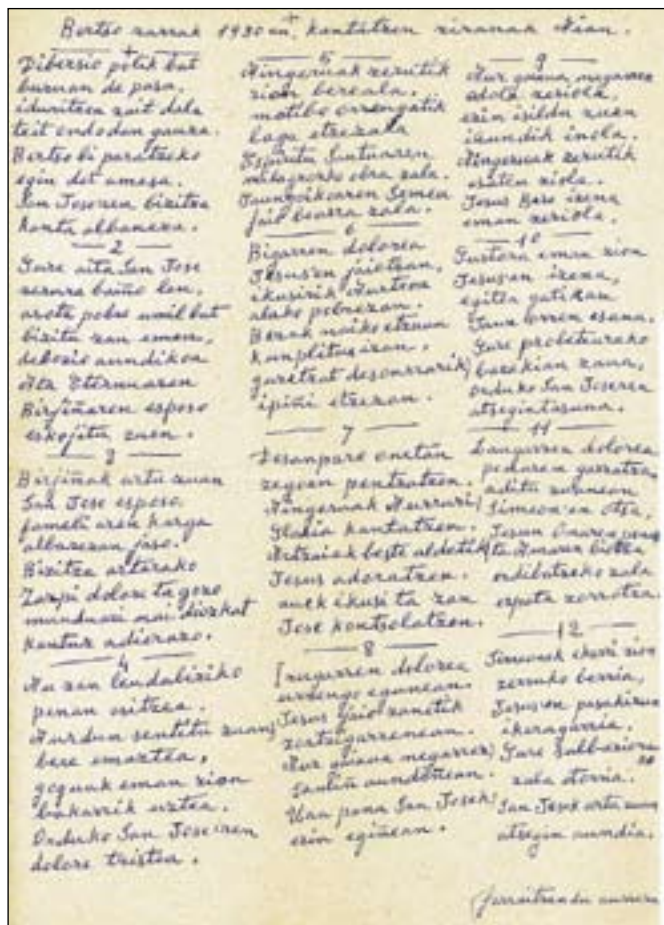 Bertso zarrak 1930 an kantatzen ziranak Nian.
+
Dibersio polit bat
buruan de pasa,
iduritzen zait dela
teit endodan gauza.
Bertso bi paratzeko
egin det amesa.
San Joseren bizitza
konta albaneza.
2
Gure aita San Jose
zerura baño len,
arotz pobre umil bat
bizitu zan emen,
debozio aundikoa
Aita Eternuaren
Birjiñaren esposo
eskojitu zuen.
3
Birjiñak artu zuan
San Jose esposo
familiaren karga
albazezan jaso.
Bizitza arterako
Zazpi dolore ta gozo
munduari nai diozkat
kantuz adierazo.
4
Au zan lendabiziko
penan sritzea.
Aurdun sentitu zuan
bere emaztea,
goguak eman zion
bakarrik uztea.
Orduko San Jose'ren
dolore tristea.
5
Aingeruak zerutik
zion bereala.
motibo orrengatik
laga etzezala
Espiritu Santuaren
milagrozko obra zala.
Jaungoikoaren Semea
jaio bearra zala.
6
Bigarren dolorea
Jesus'en jaiotzan,
ikusirik Aurtxoa
alako pobrezan.
Berak naiko etzuan
kunplitus izan.
guretzat desonrrarik
ipiñi etzezan.
7
Desanparo onetan
zegoen pentzatzen.
Aingeruak Aurrari
Gloria kantatzen.
Artzaiak beste aldetik
Jesus adoratzen.
auek ikusi ta zan
Jose kontsolatzen.
8
Irugarren dolorea
urdengo egunean.
Jesus jaio zanetik
zortzigarrenean.
Aur guava negarrez
santu aundienean.
Uan pena San Josek
ezin egiñean.
9
Aur guava negarrez
odola zeriola,
ezin isildu zuen
iñundik inola.
Aingeruak zerutik
esaten ziola.
Jesus Bere izena
eman zeriola.
10
Gustora eman zion
Jesus'en izena,
egitea gatikan
Jaun orren esana.
Gure probetxurako
bazekian zana,
orduko San Joseren
atsegintasuna.
11
Laugarren dolorea
penaren garratza,
aditu zuanean
Simeon'en otsa,
Jesus Onaren
ta Amaren biotza
erdibatzeko zala
ezpata zorrotza.
12
Simeonek ekarri zion
zerruko berria,
Jesus'en pasakizun
ikaragarria.
Gure Salbaziora
zala etorria.
San Josek artu zuan
atsegin aundia.
Jarraitzen du aurrera